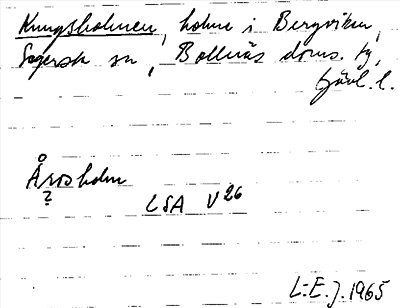 Kungsholmen, holme i Bergviken,
Segersta sn, Bollnäs doms. tg,
Gävl. l.
Årosholm
?
LSA V26
L-E. J. 1965